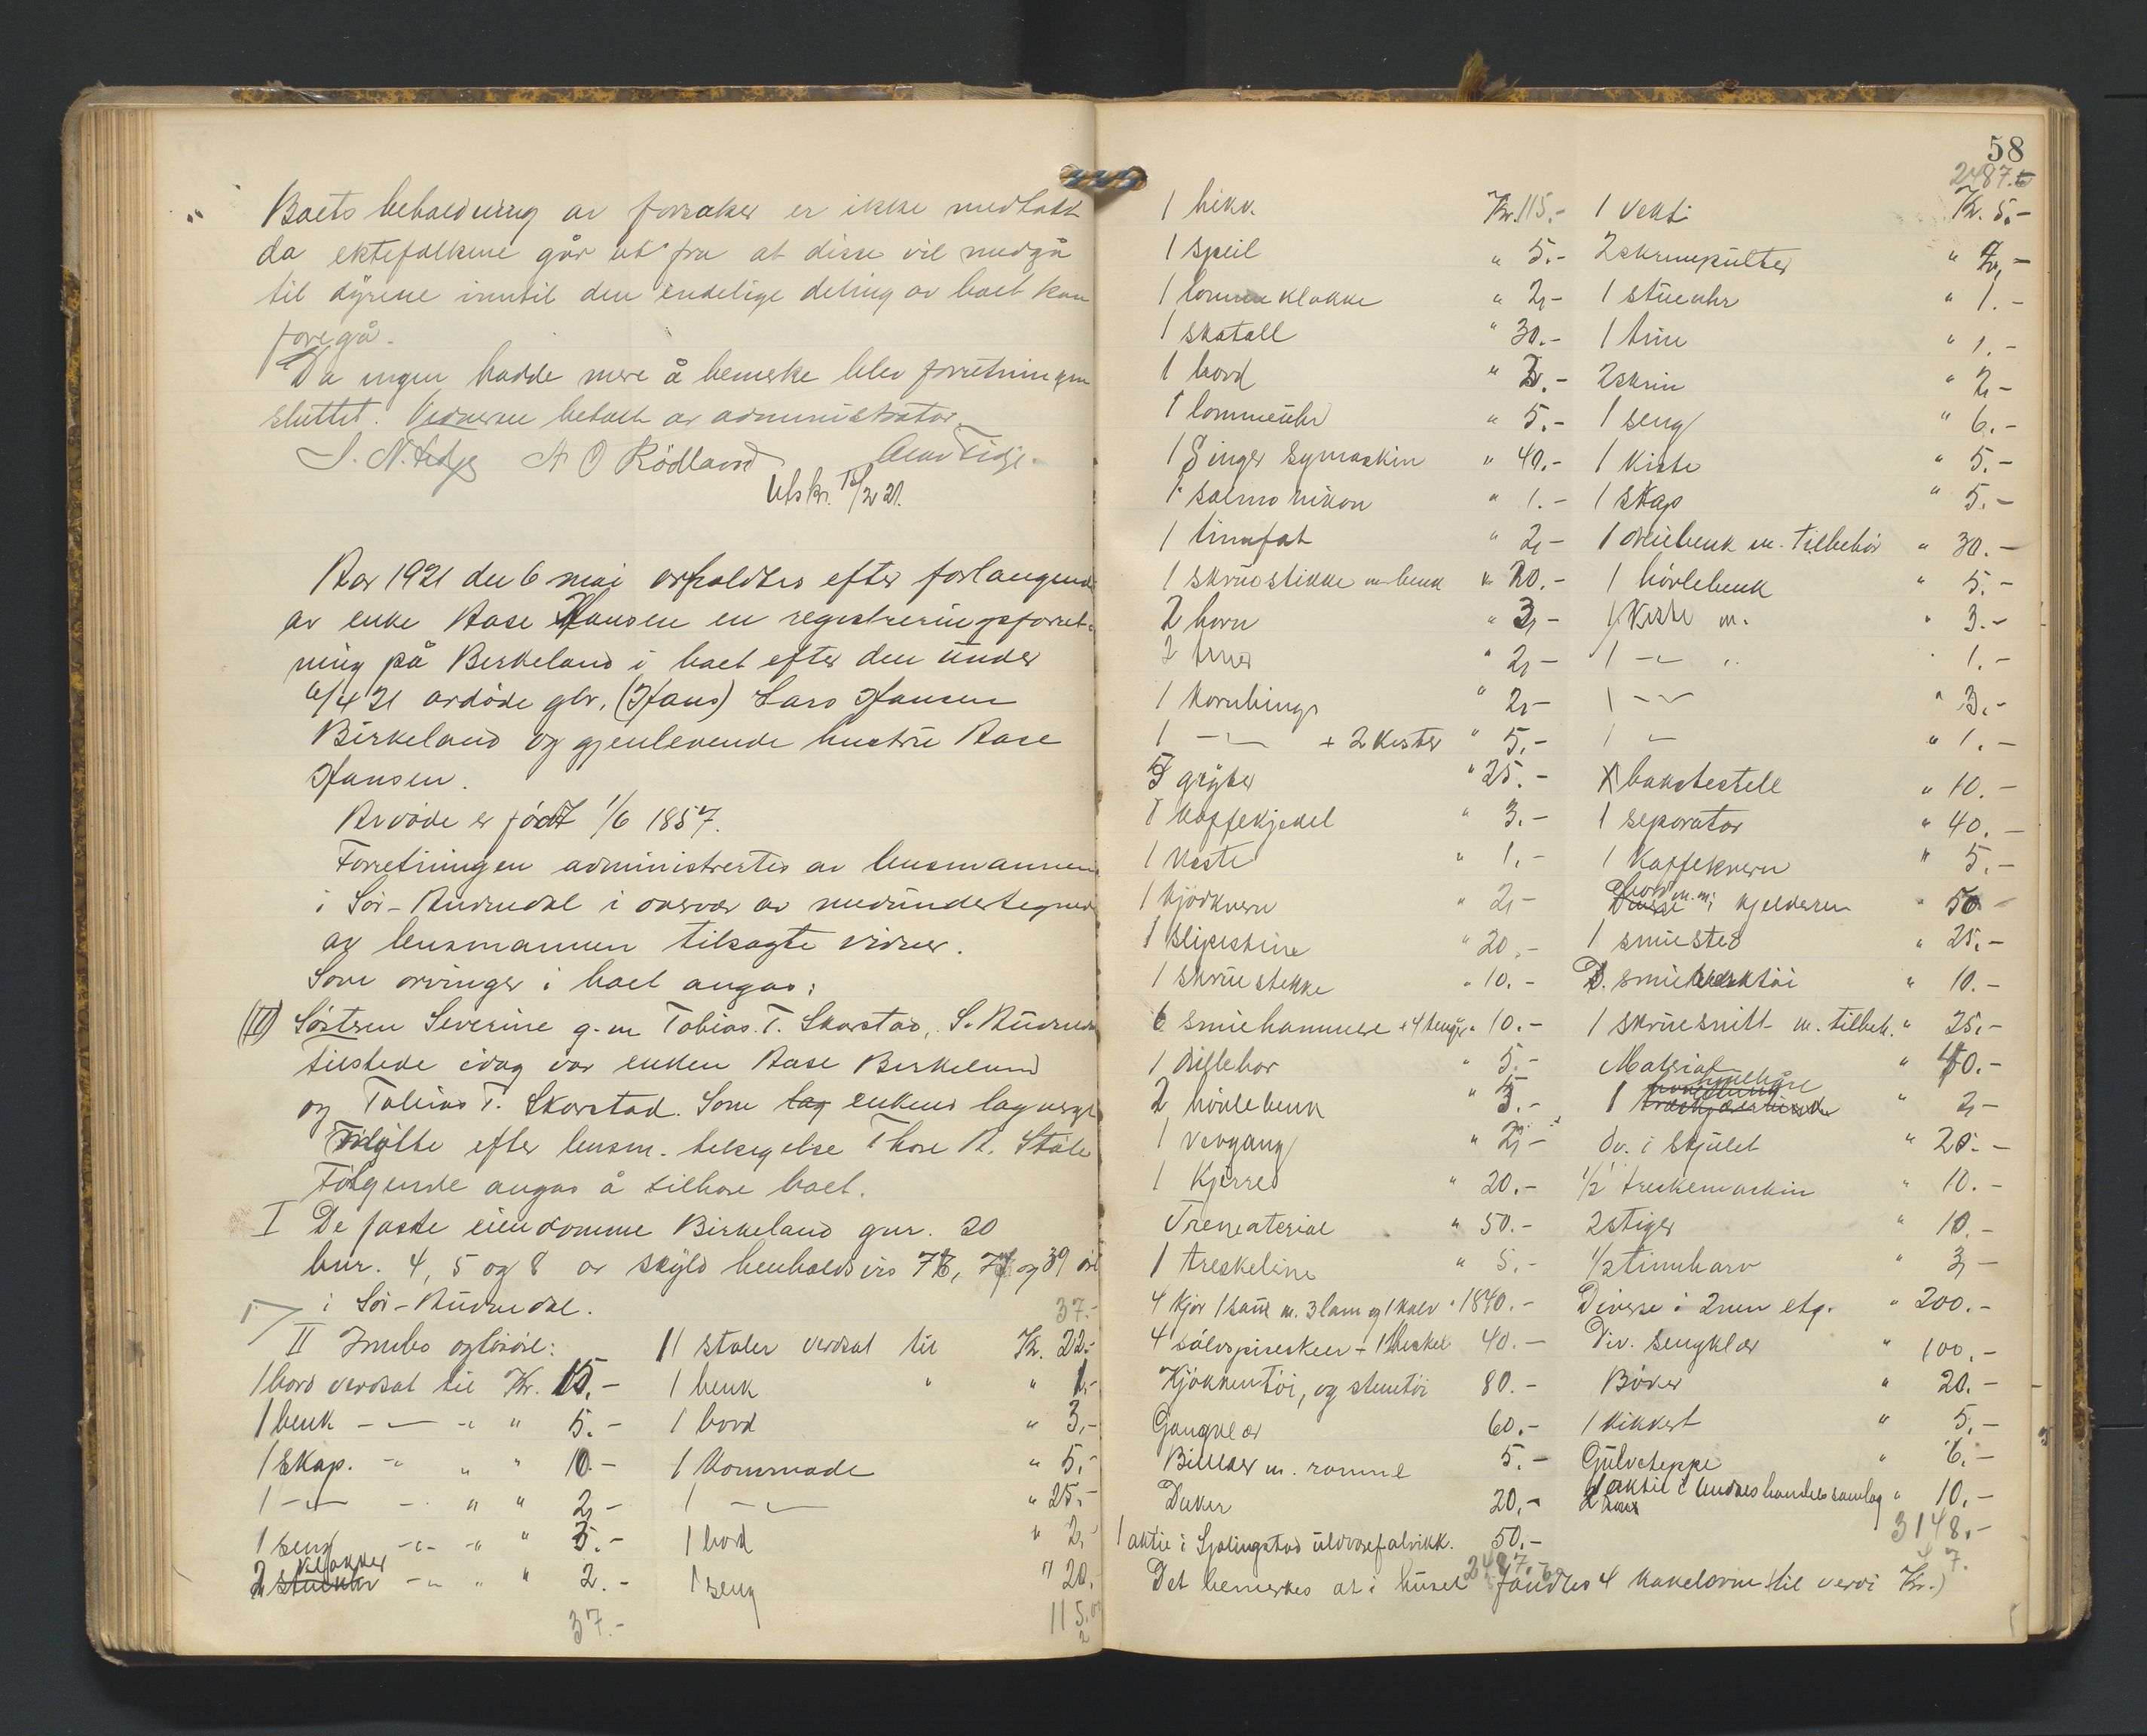 Boets beholdning av forsaker er ikke medtatt
da ektefolkene går ut fra at disse vil medgå
til dyrene inntil den endelige deling av boet kan
foregå.
Da ingen hadde mere å bemerke blev forretningen
sluttet. Vidnerne betalt av administrator.
A O Rödland
Utskr. 15/2 21.
Aar 1921 den 6 mai avholdtes efter forlangende
av enke Aase Hansen en registreringsforret-
ning på Birkeland i boet efter den under
6/4 21 avdöde gbr. (Hans) Lars Hansen
Birkeland og gjenlevende hustru Aase
Hansen.
Avdöde er födt 1/6 1857.
Forretningen administrertes av lensmannen
i Sör-Audnedal i overvær av medundertegnede
av lensmannen tilsagte vidner.
Som arvinger i boet angas:
Söstren Severine g. m Tobias T. Skorstad, S. Audnedal
tilstede idag var enken Aase Birkeland
og Tobias T. Skorstad. Som enkens lagverge
mötte efter lensm. tilsigelse Thore A. Ståle
Fölgende angas å tilhöre boet.
I De faste eiendomme Birkeland gnr. 20
bnr. 4, 5 og 8 av skyld henholdsvis og 39 öre
i Sör-Audnedal.
37.-
II Innbo og lösöre: 11 stoler verdsat til Kr. 22.-
1 bord verdsat til Kr. 15.- 1 benk " " 1.-
1 benk -"- " " 5.- 1 bord " 3,-
1 skap. -" " " 10.- 1 kommode " 5,-
1 -"- - " " 2,- 1 -"- " 25,-
1 seng -"- " " 3.- 1 bord " 2,-
2 - " " 2.- 1 seng " 20,-
37.- 115.
58
2487.
1 Kr. 115.- 1 vekt Kr. 5.-
1 speil " 5.- 2 skrivepulter " 2,-
1 lommeklokke " 2,- 1 stueuhr " 1.-
1 skatoll " 30.- 1 tine " 1.-
1 bord " 2.- 2 skrin " 2,-
1 lommeuhr " 5.- 1 seng " 6.-
1 Singer symaskin " 40.- 1 kiste " 5.-
1 salmodikon " 1.- 1 skap " 5.-
1 tinnfat " 2,- 1 dreiebenk m. tilbehör " 30.-
1 skruestikke m benk " 20.- 1 hövlebenk " 5.-
2 horn " 3,- 1 kiste m. " 3.-
2 tiner " 2,- 1 -"- " " 1.-
1 kornbinge " 2,- 1 -"- " 3.-
1 -"- + 2 kister " 5.- 1 " " 1.-
5 gryter " 25.- bakstestell " 10.-
1 kaffekjedel " 3.- 1 separator " 40.-
1 " 1.- 1 kaffekvern " 5.-
1 kjödkvern " 2,- bord m.m. i kjelderen " 50 -
1 slipestine " 20.- 1 smiested " 25.-
1 skruestikke " 10.- D. smieverktöi " 10.-
6 smiehammere + 4 tenger " 10.- 1 skruesnitt m. tilbeh. " 25.-
1 drillebor " 5.- Material " 40.-
2 hövlebenk " 3.- 1 " 2,-
1 vevgang " 2,- Dv. i skjulet " 20.-
1 Kjerre " 20.- 1/2 treskemaskin " 10.-
Trematerial " 50.- 2 stiger " 10.-
1 treskeline " 5.- 1/2 tinnharv " 3,-
4 kjör 1 sau m. 3 lam og 1 kalv " 1840.- Diverse i 2nen etg. " 200.-
4 sölvspiseskeer + 1 theskei 40.- Div. sengklær " 100.-
Kjökkentöi, og stentöi 80.- Böker " 20.-
Gangklær 60.- 1 kikkert " 5,-
Billder m. ramme 5.- Gulvteppe " 6.-
Duker 20.- 1 aktie i Undals handelssamlag " 10.-
1 aktie i Sjölingstad uldvarefabrikk. 50.- 3148.-
2487.
Det bemerkes at i huset fandtes 4 kakelovne (til verdi Kr. )